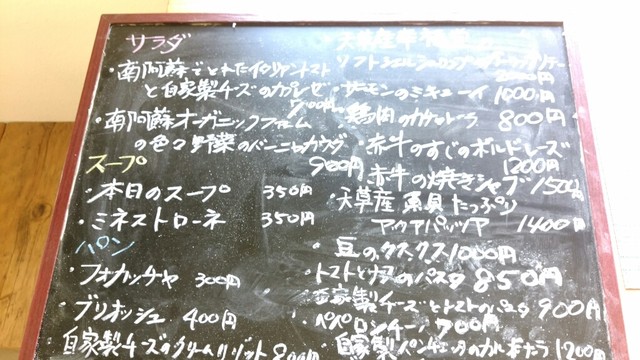 サラダ
・南阿蘇でとれたイタリアントマト
と自家製チーズのカプレーゼ
・南阿蘇オーガニックファーム
の色々野菜のバーニャカウダ
900円
スープ
・本日のスープ 350円
・ミネストローネ 350円
パン
・フォカッチャ 300円
・ブリオッシュ 400円
・自家製チーズのクリームリゾット 800円
天草産
ソフトシェル
・サーモンのミキューイ 1000円
・鶏肉のカチャトーラ 800円
・赤牛のすじのボルドレーズ
1200円
・赤牛の焼きシャブ 1500円
・天草産 魚貝たっぷり
アクアパッツァ 1400円
・豆のクスクス 1000円
・トマトとナスのパスタ 850円
・自家製チーズとトマトのパスタ 900円
・ペペロンチーノ 700円
・自家製パンチェッタのカルボナーラ 1200円